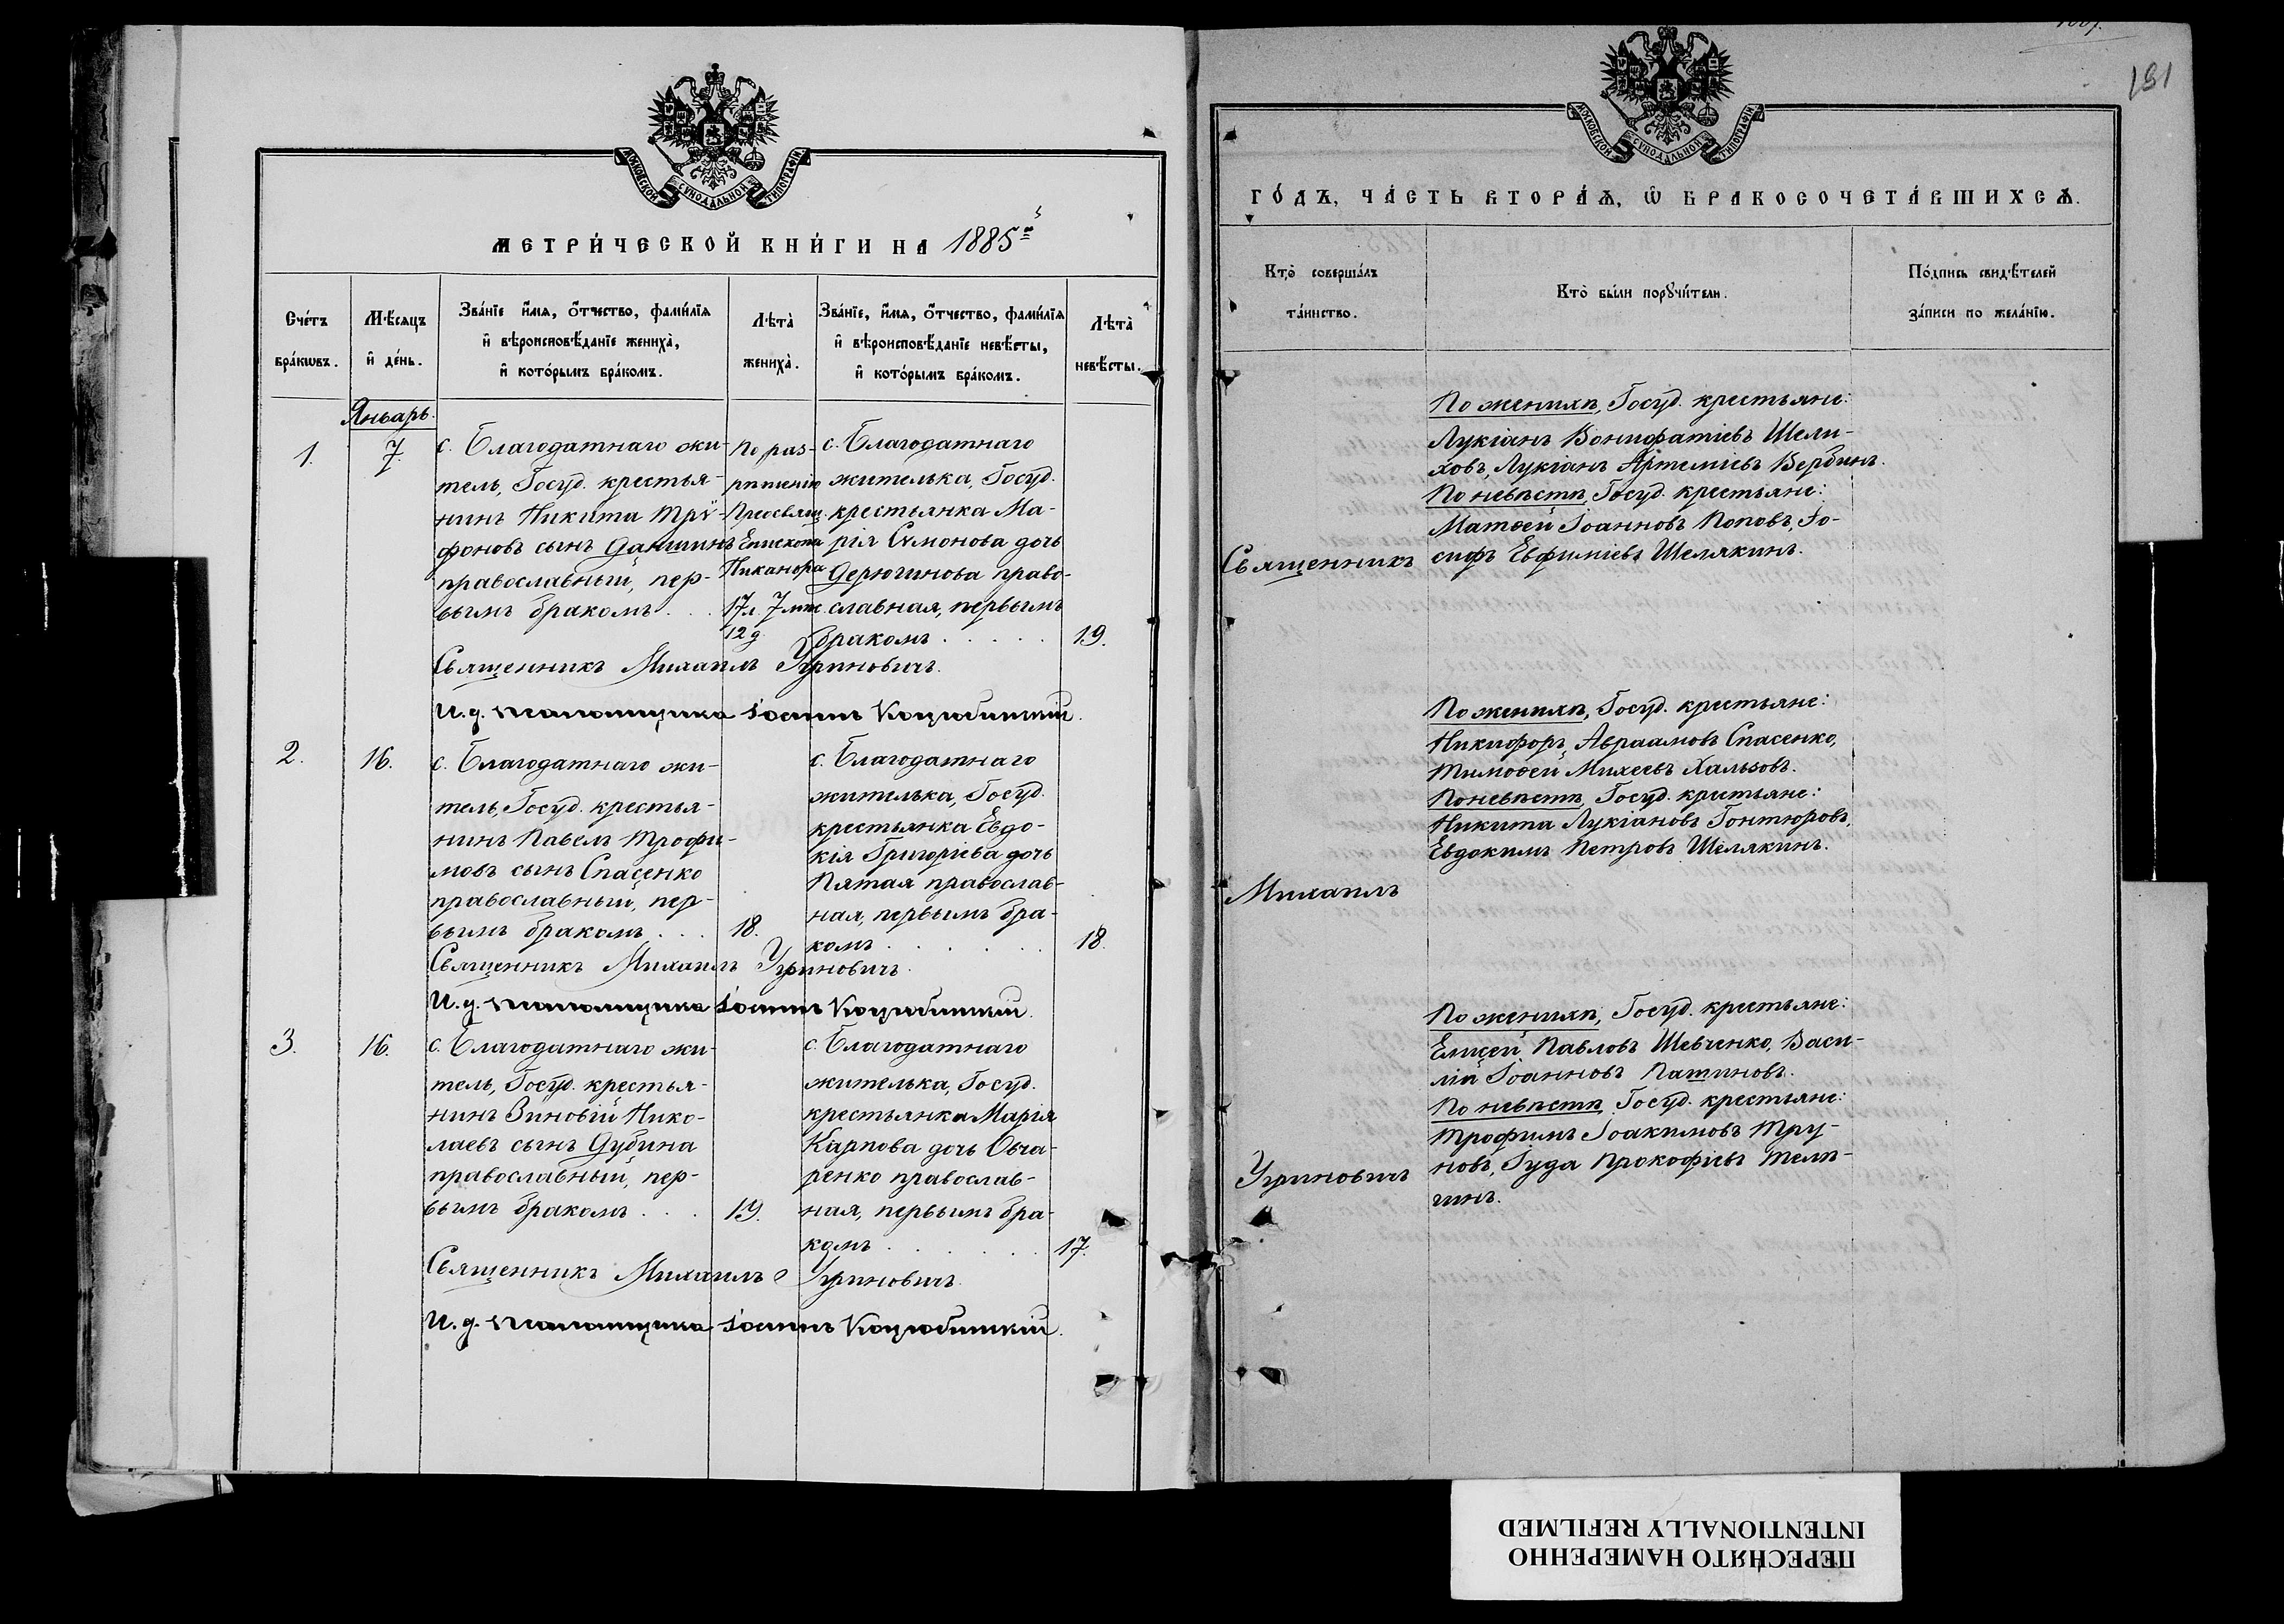 МОСКОВСКОЙ СѴНОДАЛЬНОЙ ТИПОГРАФІИ
МЕТРИ́ЧЕСКОЙ КНИ́ГИ НА 1885й
Сче́тъ бра́кωвъ.
Мѣ́сяцъ и҆ де́нь.
Зва́нїе и҆́мя, ѻ҆́тчество, фами́лїя
и҆ вѣроисповѣ́данїе жениха̀,
и҆ кото́рымъ бра́комъ.
Лѣта̀ жениха̀.
Зва́нїе, и҆́мя, ѻ҆́тчество, фами́лїя
и҆ вѣроисповѣ́данїе невѣ́сты,
и҆ кото́рымъ бра́комъ.
Лѣта̀ невѣ́сты.
Январь.
1.
7.
с. Благодатнаго жи-
тель, Госуд. крестья-
нинъ Никита Трѵ-
фоновъ сынъ Даншинъ
православный, пер-
вымъ бракомъ . . .
По раз-
рѣшенію
Преосвящ.
Епископа
Никанора
17 л. 7 мѣс
12 д.
с. Благодатнаго
жителька, Госуд.
крестьянка Ма-
рія Сѵмонова дочь
Дерюгинова право-
славная, первымъ
бракомъ . . . . .
19.
Священникъ Михаилъ Угриновичъ.
И. д. псаломщика Іоаннъ Коцюбинскій.
2.
16.
с. Благодатнаго жи-
тель, Госуд. крестья-
нинъ Павелъ Трофи-
мовъ сынъ Спасенко
православный, пер-
вымъ бракомъ . . .
18.
с. Благодатнаго
жителька, Госуд.
крестьянка Евдо-
кія Григоріева дочь
Пятая православ-
ная, первымъ бра-
комъ . . . . . .
18.
Священникъ Михаилъ Угриновичъ.
И. д. псаломщика Іоаннъ Коцюбинскій.
3.
16.
с. Благодатнаго жи-
тель, Госуд. крестья-
нинъ Зиновій Нико-
лаевъ сынъ Дубина
православный, пер-
вымъ бракомъ . . .
19.
с. Благодатнаго
жителька, Госуд.
крестьянка Марія
Карпова дочь Овча-
ренко православ-
ная, первымъ бра-
комъ . . . . . .
17.
Священникъ Михаилъ Угриновичъ.
И. д. псаломщика Іоаннъ Коцюбинскій.
191
МОСКОВСКОЙ СѴНОДАЛЬНОЙ ТИПОГРАФІИ
ГО́ДЪ, ЧА́СТЬ ВТОРА́Я, Ѽ БРАКОСОЧЕТА́ВШИХСЯ.
Кто̀ соверша́лъ
та́инство.
Кто̀ бы́ли порꙋчи́тели.
По́дпись свидѣ́телей
за́писи по жела́нїю.
По женихѣ, Госуд. крестьяне:
Лукіанъ Вонифатіевъ Шели-
ховъ, Лукіанъ Артеміевъ Вербинъ.
По невѣстѣ, Госуд. крестьяне:
Матѳей Іоанновъ Поповъ, Іо-
сифъ Евфиміевъ Шелякинъ.
Священникъ
По женихѣ, Госуд. крестьяне:
Никифоръ Авраамовъ Спасенко,
Тимоѳей Михеевъ Хальзовъ.
По невѣстѣ, Госуд. крестьяне:
Никита Лукіановъ Гонтюровъ,
Евдокимъ Петровъ Шелякинъ.
Михаилъ
По женихѣ, Госуд. крестьяне:
Елисей Павловъ Шевченко, Васи-
лій Іоанновъ Пашиновъ.
По невѣстѣ, Госуд. крестьяне:
Трофимъ Іоакимовъ Тру-
новъ, Іуда Прокофіевъ Телѣ-
гинъ.
Угриновичъ
ПЕРЕСНЯТО НАМЕРЕННО
INTENTIONALLY REFILMED